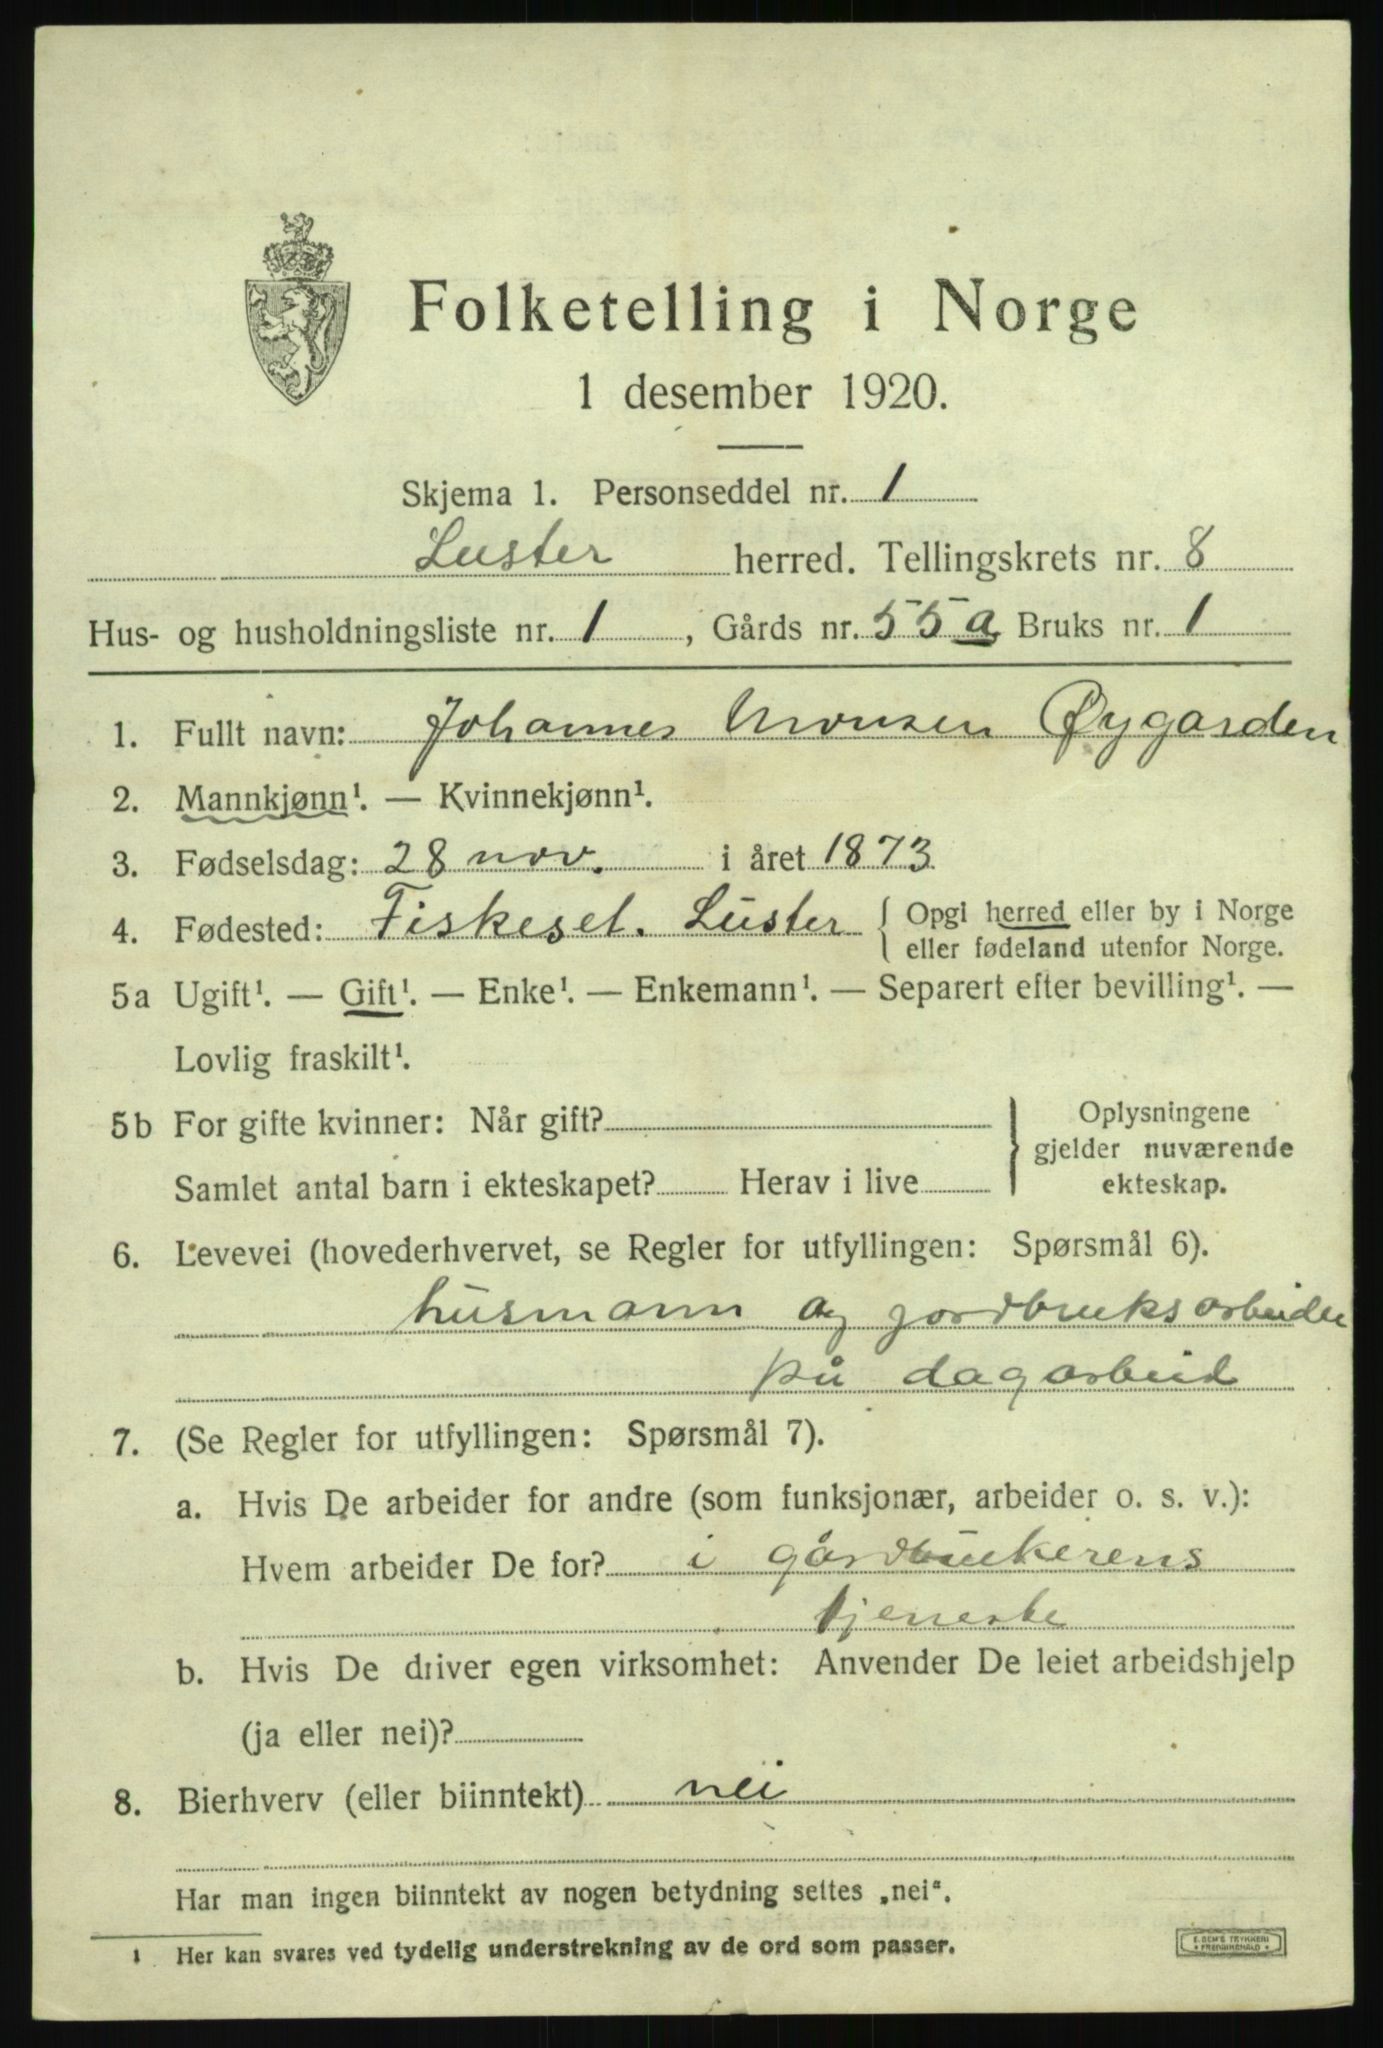 Folketelling i Norge
1 desember 1920.
Skjema 1. Personseddel nr. 1
Luster herred. Tellingskrets nr. 8
Hus- og husholdningsliste nr. 1, Gårds nr. 55a Bruks nr. 1
1. Fullt navn: Johannes Monsen Øygarden
2. Mannkjønn¹. — Kvinnekjønn¹.
3. Fødselsdag: 28 nov. i året 1873
4. Fødested: Fiskeset. Luster { Opgi herred eller by i Norge
eller fødeland utenfor Norge.
5a Ugift¹. — Gift¹. — Enke¹. — Enkemann¹. — Separert efter bevilling¹. —
Lovlig fraskilt¹.
5b For gifte kvinner: Når gift?
Samlet antal barn i ekteskapet? Herav i live
} Oplysningene
gjelder nuværende
ekteskap.
6. Levevei (hovederhvervet, se Regler for utfyllingen: Spørsmål 6).
husmann og jordbruksarbeider
på dagarbeid
7. (Se Regler for utfyllingen: Spørsmål 7).
a. Hvis De arbeider for andre (som funksjonær, arbeider o. s. v.):
Hvem arbeider De for? i gårdbrukerens
tjeneste
b. Hvis De driver egen virksomhet: Anvender De leiet arbeidshjelp
(ja eller nei)?
8. Bierhverv (eller biinntekt) nei
Har man ingen biinntekt av nogen betydning settes „nei“.
1 Her kan svares ved tydelig understrekning av de ord som passer.